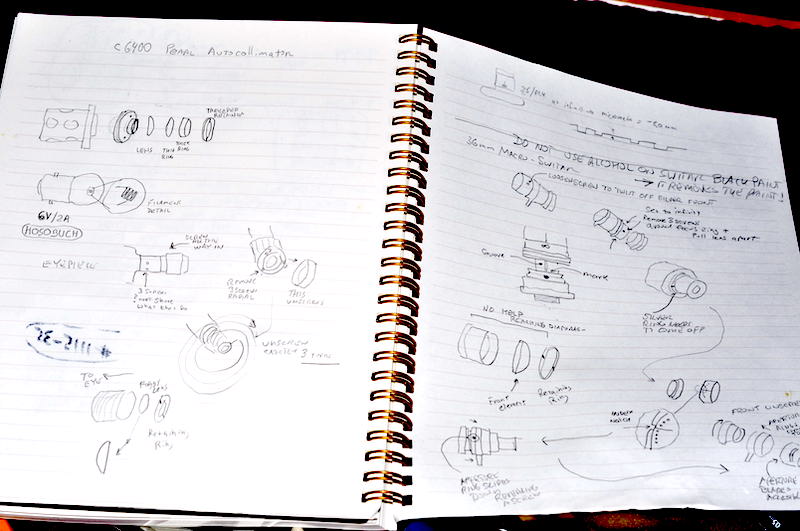 C6400 PEARL AUTOCOLLIMATOR
LENS
THIN
RING
THICK
RING
RETAINING
FILAMENT
DETAIL
6V/2A
HOSOBUCH
EYEPIECE
SCREW
WAY IN
3 SCREWS
REMOVE
3 SCREWS
RADIAL
THIS
UNSCREWS
UNSCREW
EXACTLY 3 TURNS
TO
EYE
LENS
Retaining
Ring
DO NOT USE ALCOHOL ON SWITAR BLACK PAINT
→ IT REMOVES THE PAINT!
36mm MACRO-SWITAR
LOOSEN SCREW TO TWIST OFF SILVER FRONT
Set to infinity
Remove 3 screws
around focus ring +
Pull lens apart
Groove
mark
SILVER
RING NEEDS
TO COME OFF
NO HELP
REMOVING DIAPHRAGM
Front
element
Retaining
Ring
INDEX
NOTCH
FRONT UNSCREWS
APERTURE
RING SLIDES
DOWN REVEALING
A SCREW
APERTURE
BLADES
ACCESSIBLE